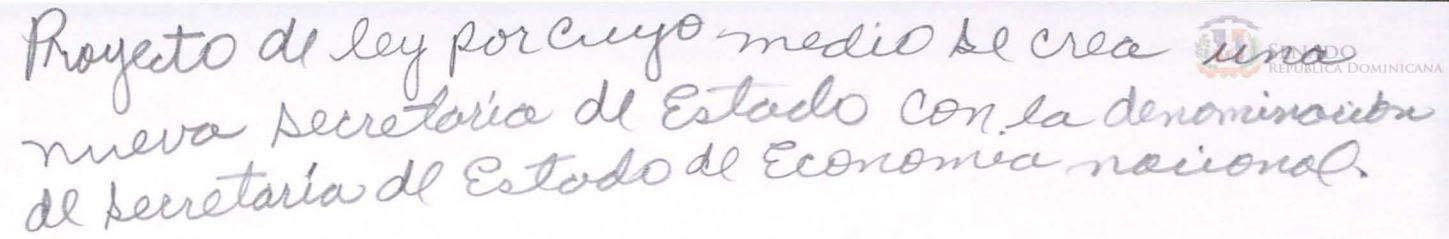 Proyecto de ley por cuyo medio se crea una
nueva secretaría de Estado con la denominación
de secretaría de Estado de Economía nacional.
SENADO
REPÚBLICA DOMINICANA